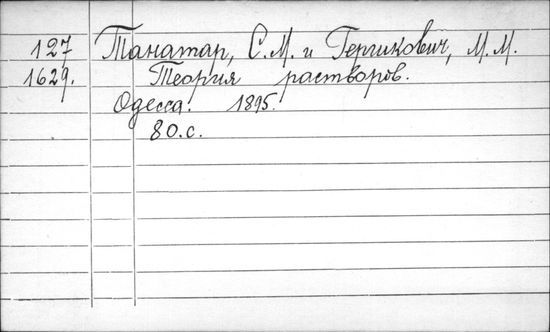 127 Танатар, С.М. и Гершкович, М.М.
1629. Теория растворов.
Одесса. 1895.
80.с.